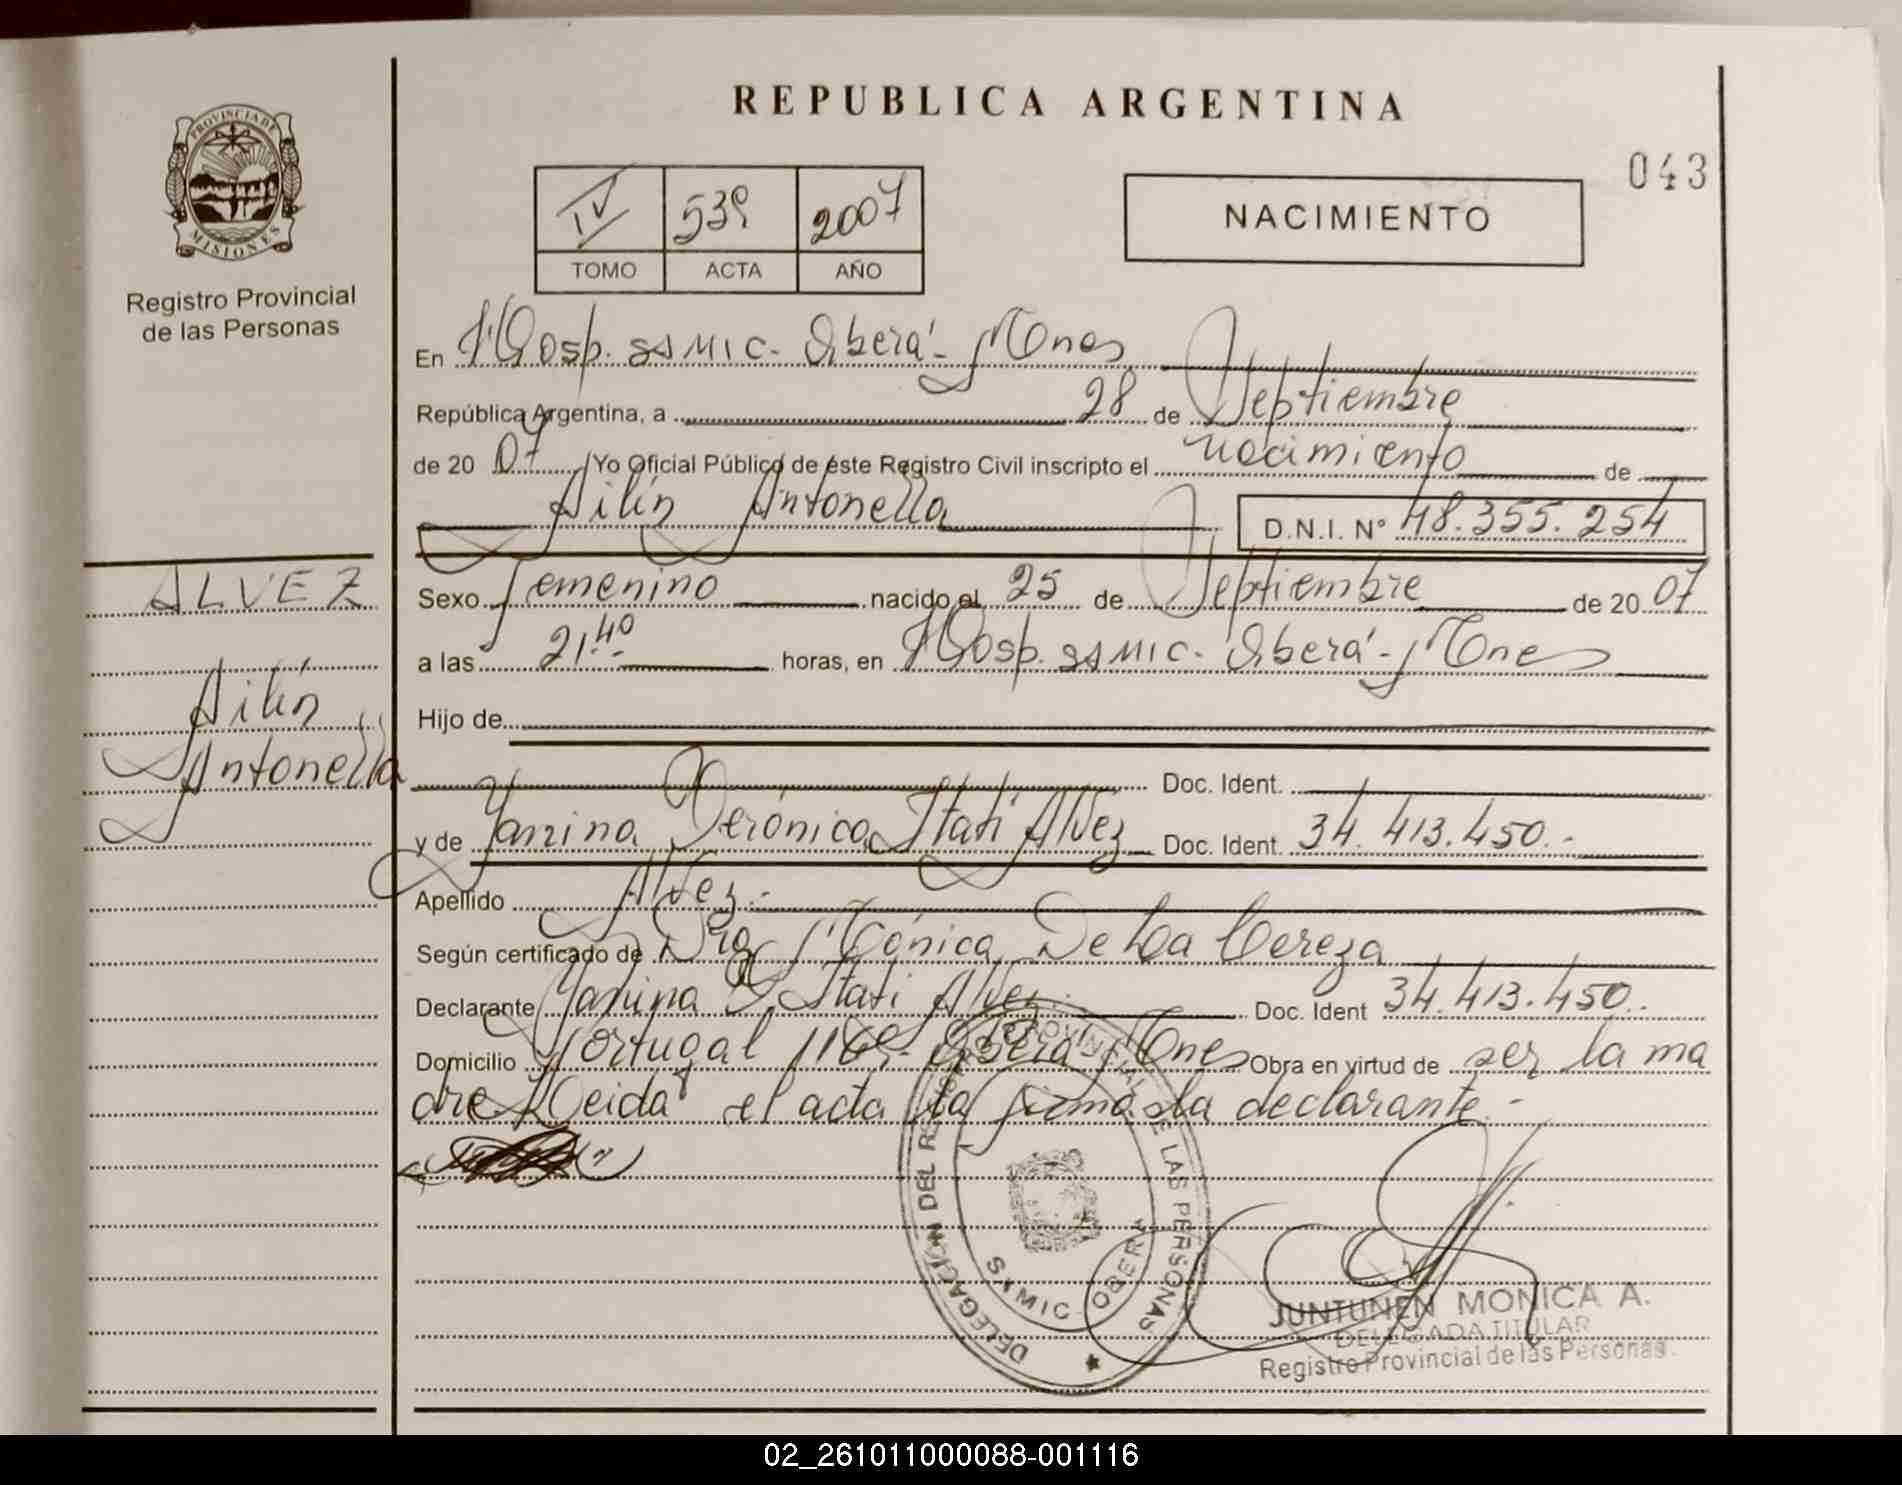 REPUBLICA ARGENTINA
043
PROVINCIA DE
MISIONES
Registro Provincial
de las Personas
IV 539 2007
TOMO ACTA AÑO
NACIMIENTO
En Hosp. SAMIC - Oberá - Mnes
República Argentina, a 28 de Septiembre
de 20 07 Yo Oficial Público de este Registro Civil inscripto el nacimiento de
Ailín Antonella D.N.I. N° 48.355.254
ALVEZ
Ailín
Antonella
Sexo femenino nacido el 25 de Septiembre de 20 07
a las 21:40 horas, en Hosp. SAMIC - Oberá - Mnes
Hijo de
Doc. Ident.
y de Yanina Verónica Itatí Alvez Doc. Ident. 34.413.450.-
Apellido Alvez.-
Según certificado de Dra Mónica De La Cereza
Declarante Yanina V. Itatí Alvez.- Doc. Ident 34.413.450.-
Domicilio Portugal Oberá Mnes Obra en virtud de ser la ma
dre Leída el acta la firma la declarante.-
DELEGACION DEL REGISTRO PROVINCIAL DE LAS PERSONAS
SAMIC OBERA
JUNTUNEN MONICA A.
DELEGADA TITULAR
Registro Provincial de las Personas.
02_261011000088-001116